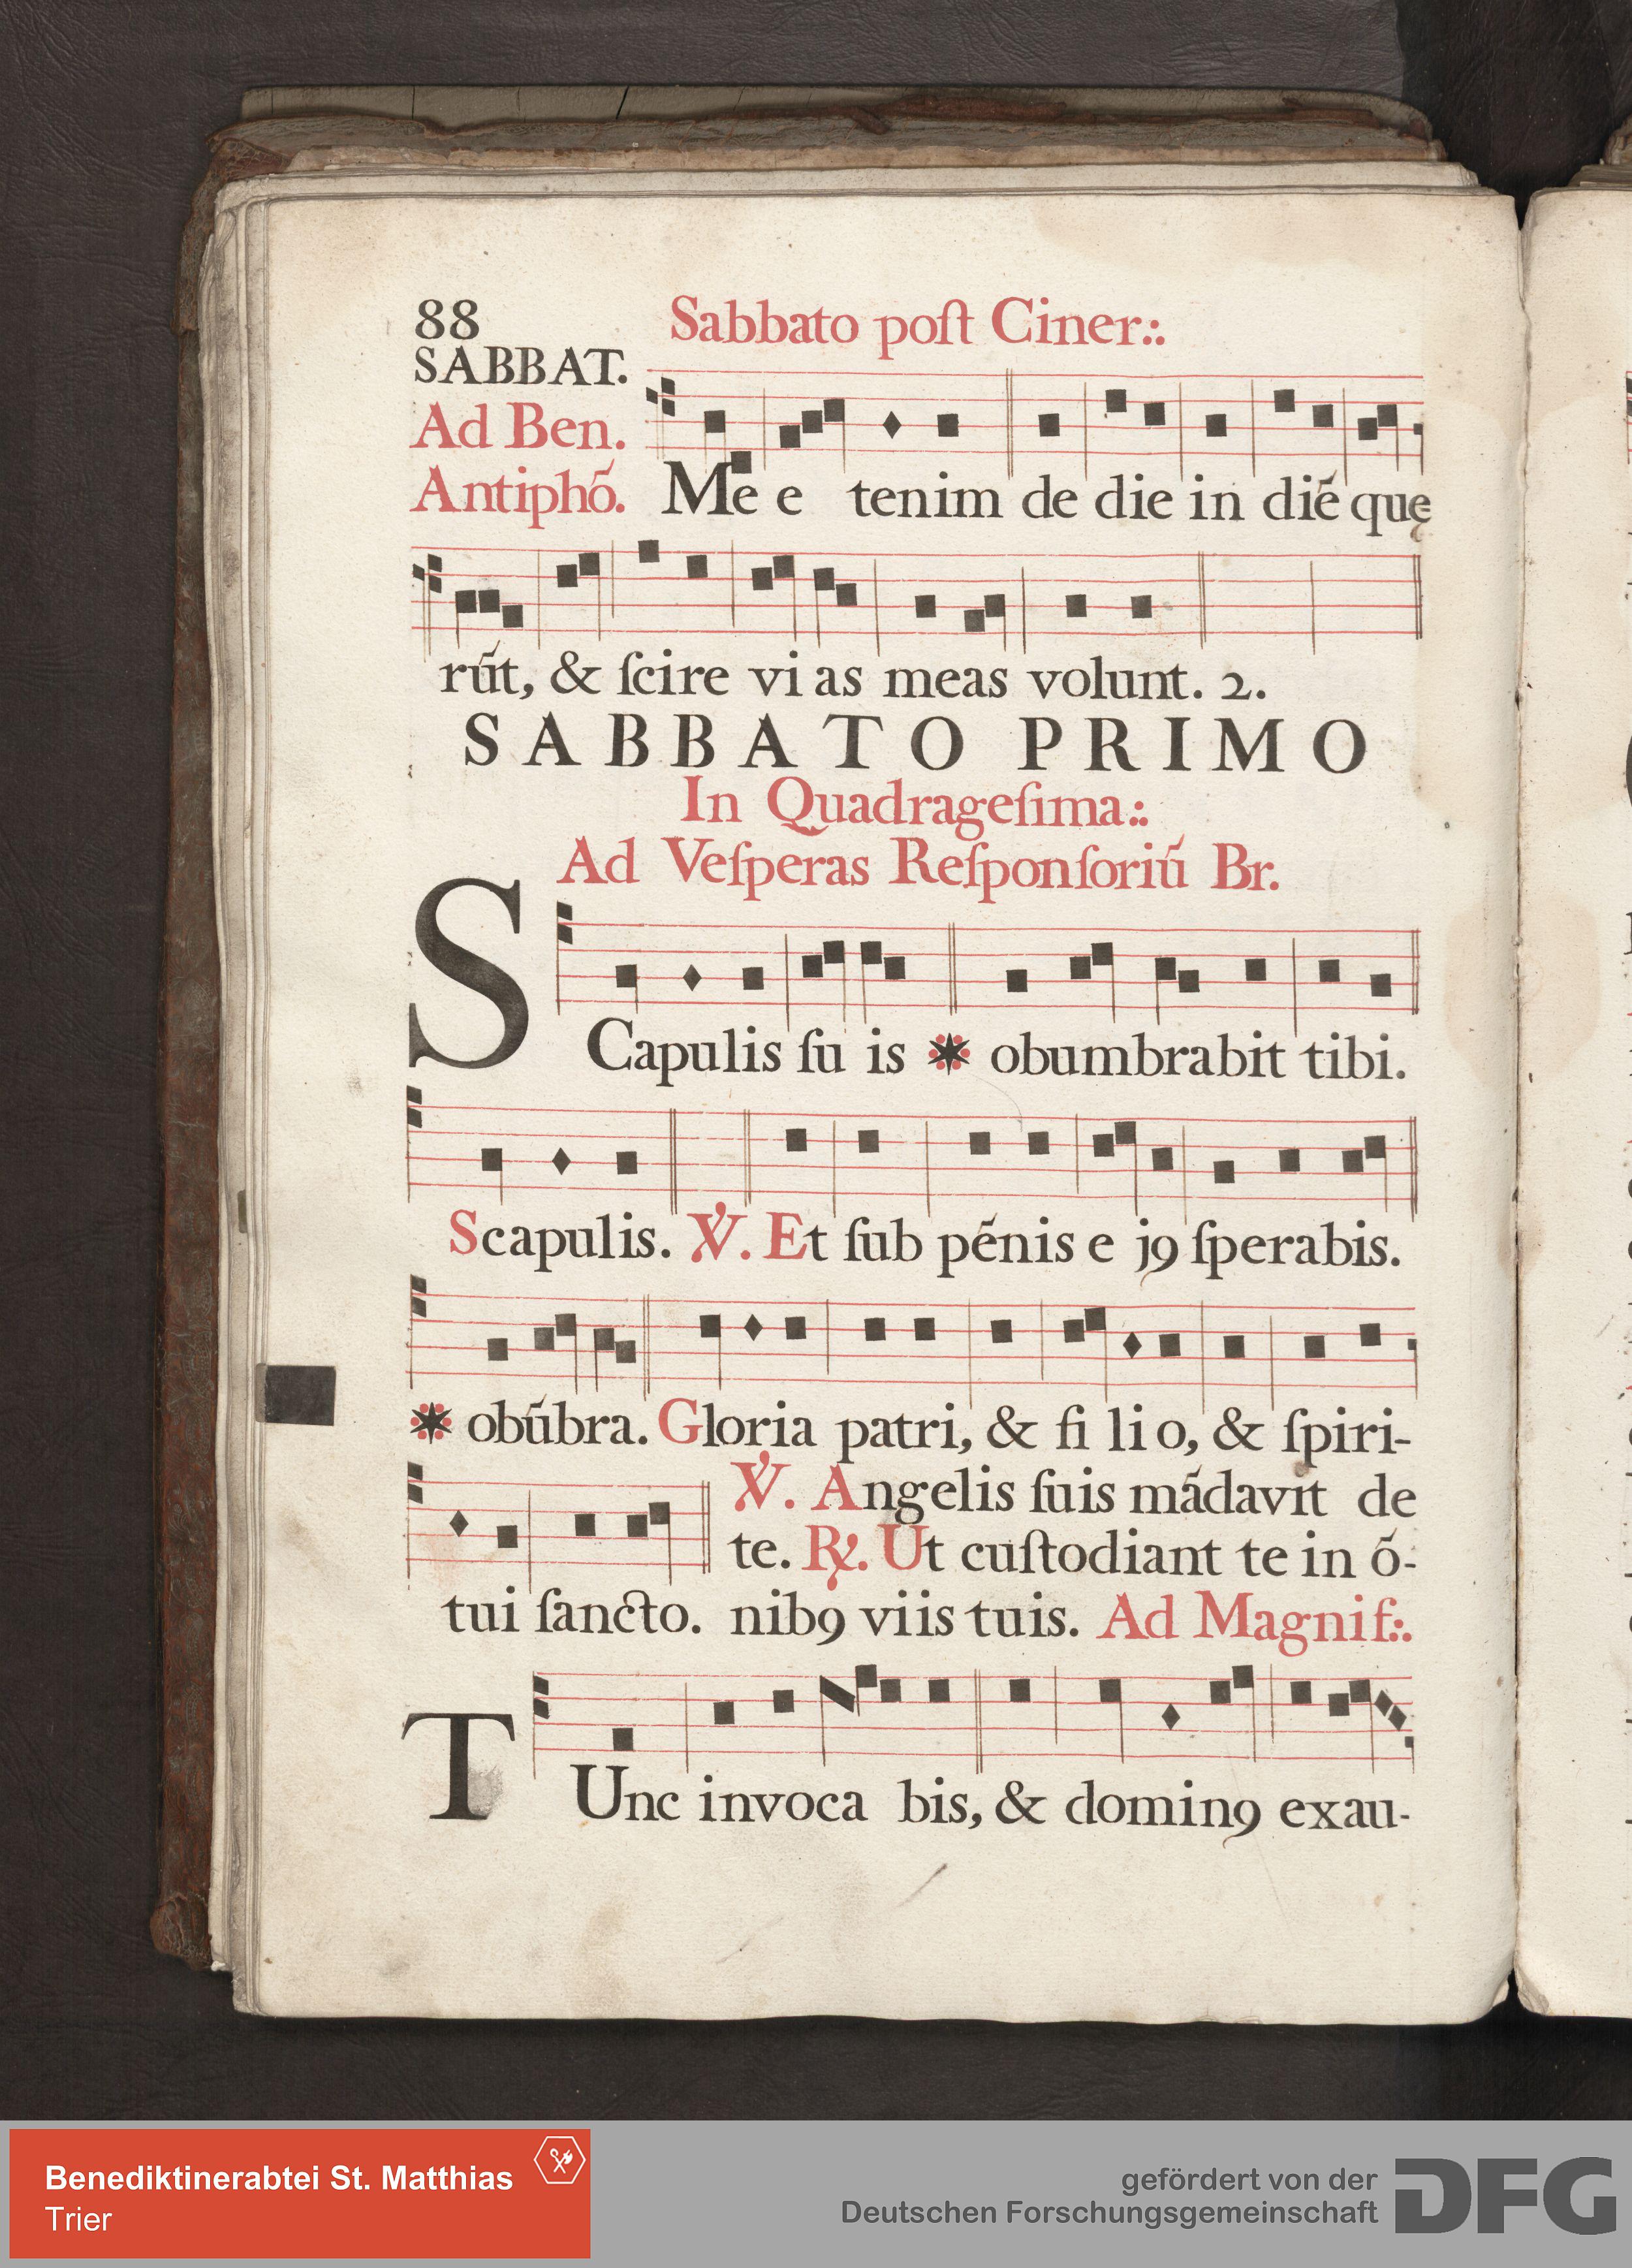 88 Sabbato poſt Ciner:.
SABBAT.
Ad Ben.
Antiphō. Me e tenim de die in diē quę
rūt, & ſcire vi as meas volunt. 2.
SABBATO PRIMO
In Quadrageſima:.
Ad Veſperas Reſponſoriū Br.
SCapulis ſu is * obumbrabit tibi.
Scapulis. ℣. Et ſub pēnis e j9 ſperabis.
* obūbra. Gloria patri, & fi li o, & ſpiri-
℣. Angelis ſuis mādavit de
te. ℟. Ut cuſtodiant te in ō-
tui ſancto. nib9 viis tuis. Ad Magnif:.
TUnc invoca bis, & domin9 exau-
Benediktinerabtei St. Matthias
Trier
gefördert von der
Deutschen Forschungsgemeinschaft
DFG